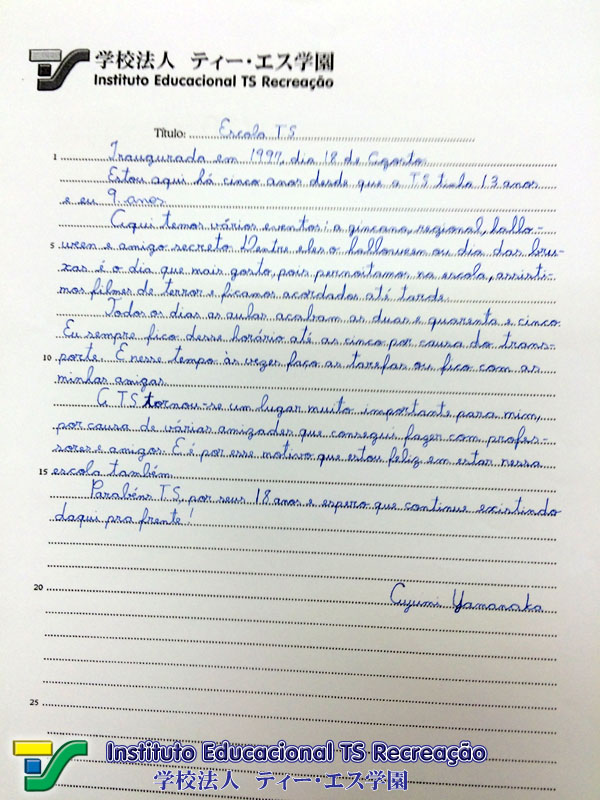 学校法人 ティー・エス学園
Instituto Educacional TS Recreação
Título: Escola TS
1 Inaugurada em 1997, dia 18 de Agosto.
Estou aqui há cinco anos desde que a TS tinha 13 anos
e eu 9 anos.
Aqui temos vários eventos: a gincana, regional, hallo-
5 ween e amigo secreto. Dentre eles o halloween ou dia das bru-
xas é o dia que mais gosto, pois pernoitamos na escola, assisti-
mos filmes de terror e ficamos acordados até tarde.
Todos os dias as aulas acabam as duas e quarenta e cinco.
Eu sempre fico desse horário até as cinco por causa do trans-
10 porte. E nesse tempo às vezes faço as tarefas ou fico com as
minhas amigas.
A TS tornou-se um lugar muito importante para mim,
por causa de várias amizades que consegui fazer com profes-
sores e amigos. E é por esse motivo que estou feliz em estar nessa
15 escola também.
Parabéns TS, por seus 18 anos e espero que continue existindo
daqui pra frente!
20 Ayumi Yamanaka
25
TS Instituto Educacional TS Recreação
学校法人 ティー・エス学園